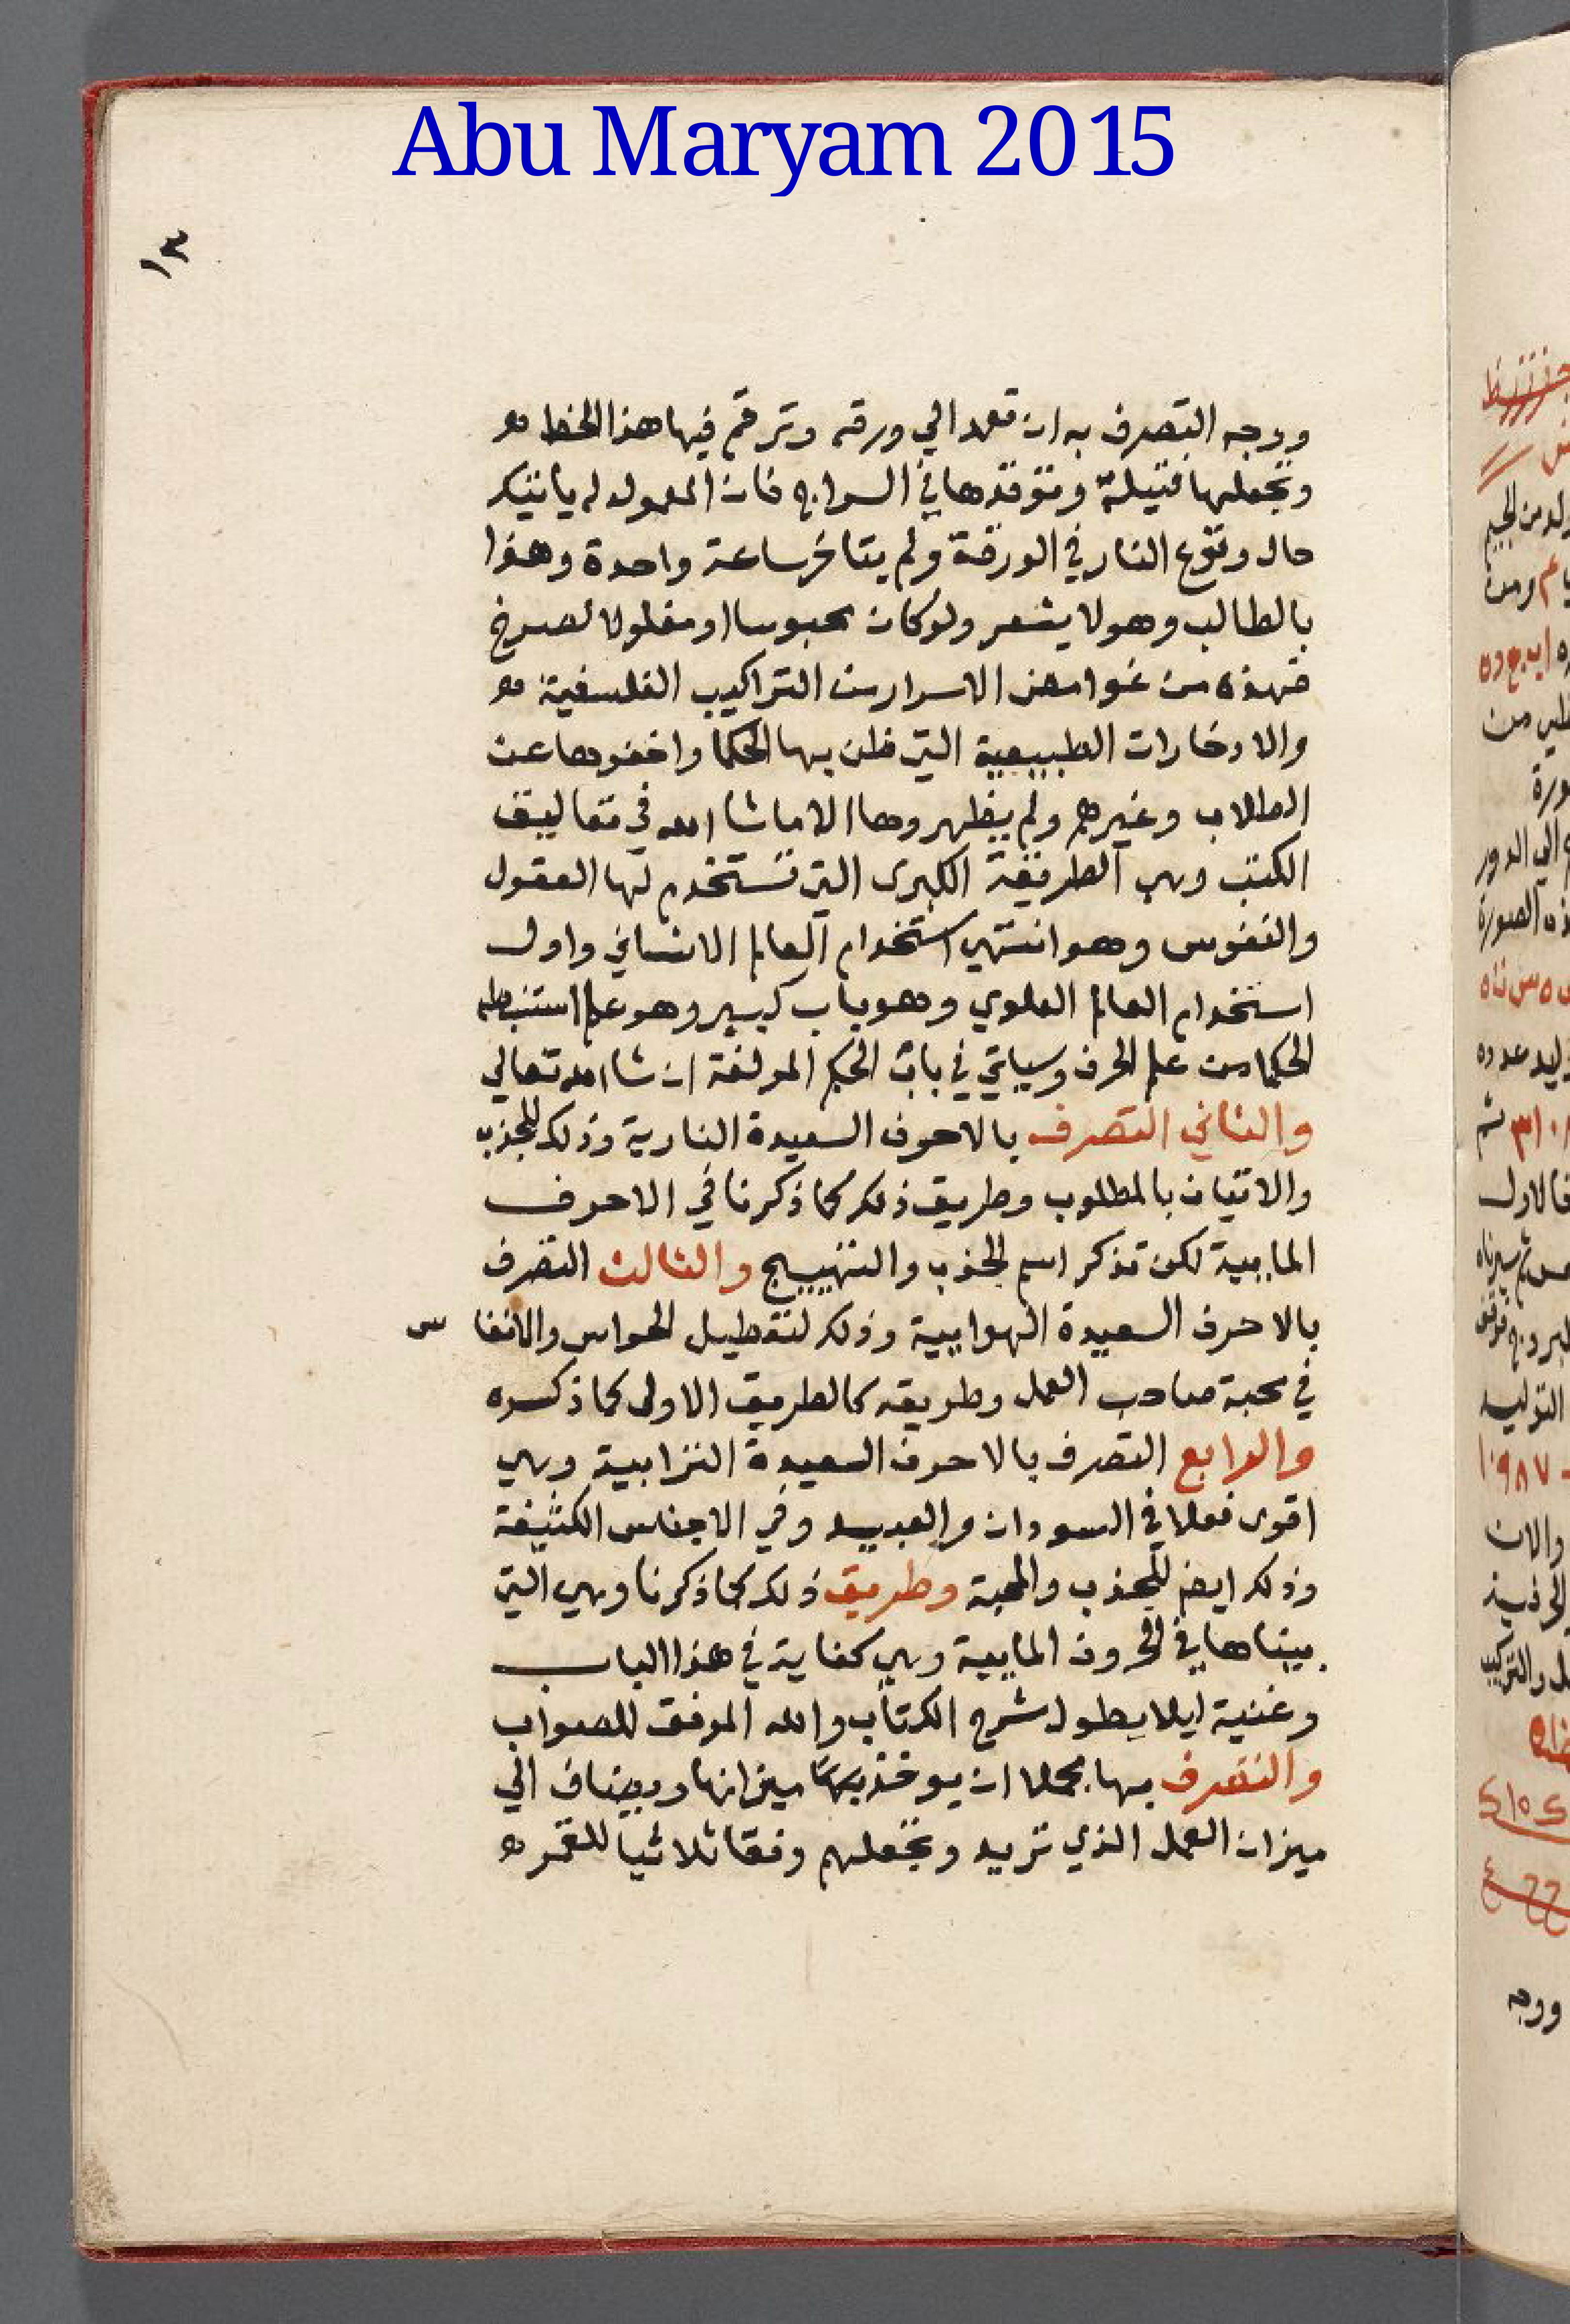 Abu Maryam 2015
١٣
ووجه التصرف به ان تعمد الي ورقه وترقم فيها هذا الخط
وتجعلها فتيلة وتوقدها في السراج فان المعمول له ياتيك
حال وقوع النار في الورقة ولم يتاخر ساعة واحدة وهذا
بالطالب وهو لا يشعر ولو كان محبوسا او مغلولا لصرخ
فهذه من غوامض الاسرار من التراكيب الفلسفية
والادخارات الطبيعية التي ظن بها الحكما واخفوها عن
الطلاب وغيرهم ولم يظهروها الا ما شا الله في تعاليف
الكتب وهي الطريقة الكبرى التي تستخدم لها العقول
والنفوس وهو انتهي استخدام العالم الانساني واول
استخدام العالم العلوي وهو باب كبير وهو علم استنبطه
الحكما من علم الحرف وسياتي في باب الحكم المولفة ان شا الله تعالي
والثاني التصرف بالاحرف السعيدة النارية وذلك للجذب
والاتيان بالمطلوب وطريق ذلك كما ذكرنا في الاحرف
المايية لكن تذكر اسم الجذب والتهييج والثالث التصرف
بالاحرف السعيدة الهوايية وذلك لتعطيل الحواس والانفا س
في محبة صاحب العمل وطريقه كالطريق الاولى كما ذكره
والرابع التصرف بالاحرف السعيدة الترابية وهي
اقوى فعلا في السودان والعبيد وفي الاجناس الكثيفة
وذلك ايض للجذب والمحبة وطريق ذلك كما ذكرنا وهي التي
بيناها في الحروف المايية وهي كفاية في هذا الباب
وغنية ليلا يطول شرح الكتاب والله الموفق للصواب
والتصرف بها مجملا ان يوخذ ميزانها ويضاف الي
ميزان العمل الذي تريد وتجعلهم وفقا ثلاثيا للقمر
ووجه